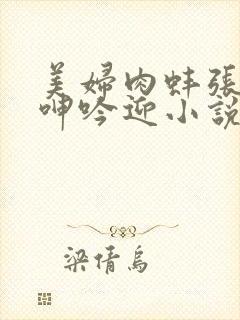 美婦肉蚌張開
呻吟迎小說
梁倩烏